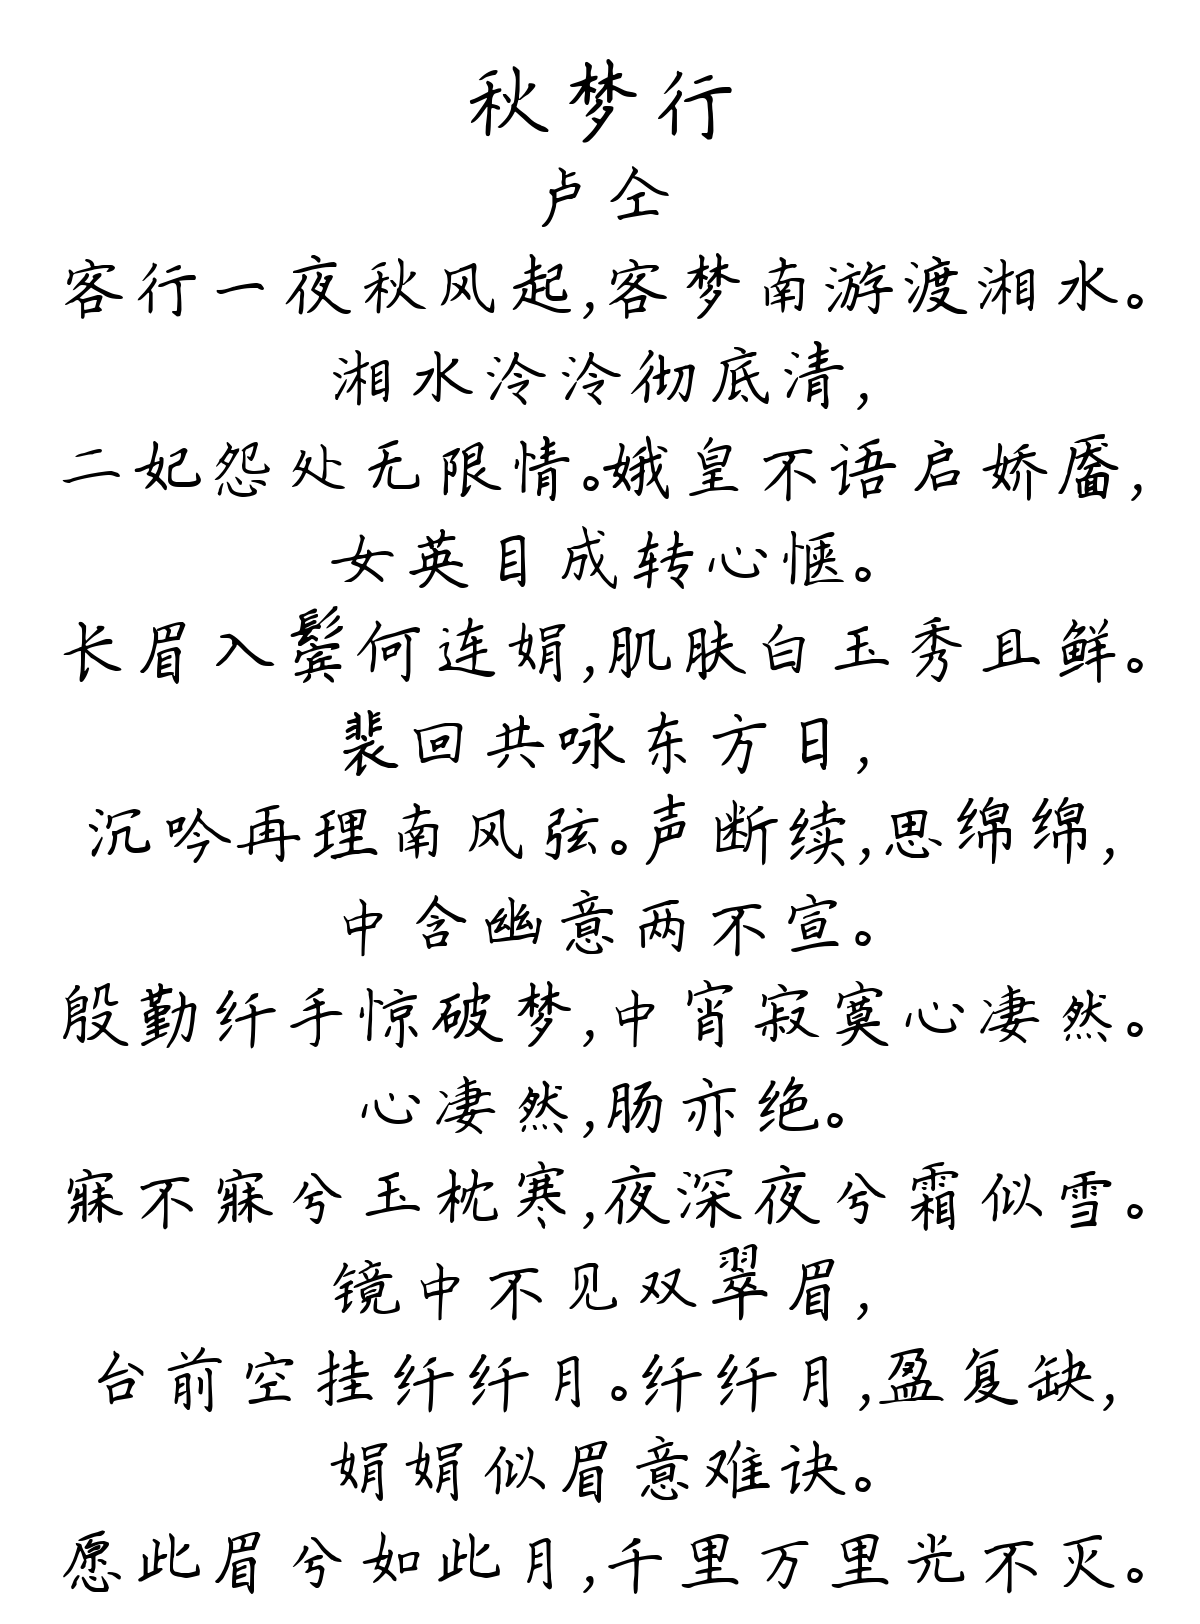 秋梦行
卢仝
客行一夜秋风起,客梦南游渡湘水。
湘水泠泠彻底清,
二妃怨处无限情。娥皇不语启娇靥,
女英目成转心惬。
长眉入鬓何连娟,肌肤白玉秀且鲜。
裴回共咏东方日,
沉吟再理南风弦。声断续,思绵绵,
中含幽意两不宣。
殷勤纤手惊破梦,中宵寂寞心凄然。
心凄然,肠亦绝。
寐不寐兮玉枕寒,夜深夜兮霜似雪。
镜中不见双翠眉,
台前空挂纤纤月。纤纤月,盈复缺,
娟娟似眉意难诀。
愿此眉兮如此月,千里万里光不灭。